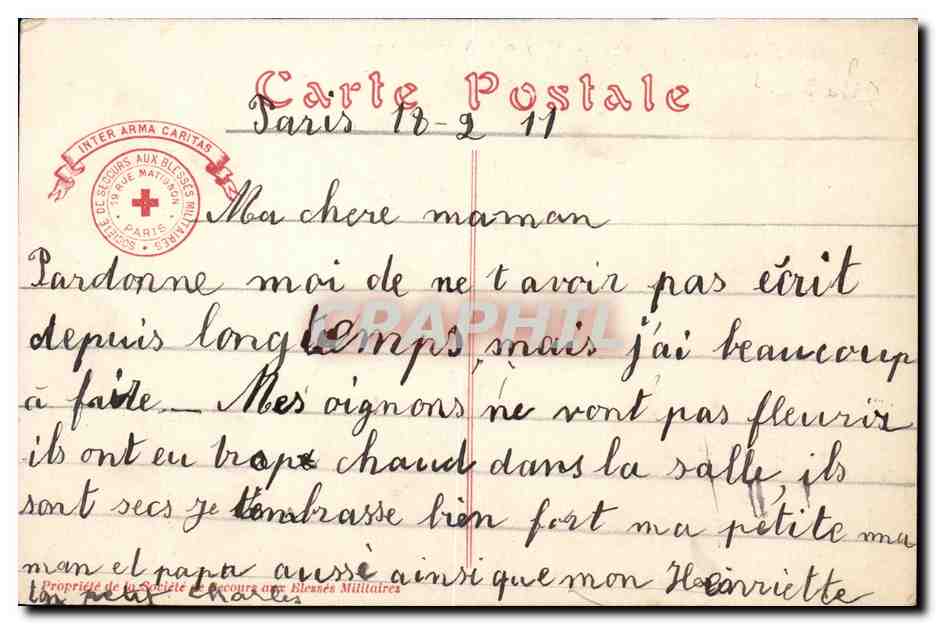 Carte Postale
Paris 18-2 11
INTER ARMA CARITAS
SOCIÉTÉ DE SECOURS AUX BLESSÉS MILITAIRES
19 RUE MATIGNON
PARIS
Ma chere maman
Pardonne moi de ne t avoir pas écrit
depuis longtemps, mais j'ai beaucoup
à faire _ Mes oignons ne vont pas fleurir
ils ont eu trop chaud dans la salle, ils
sont secs je t'embrasse bien fort ma petite ma
man et papa aussi ainsi que mon Henriette
Propriété de la Société de Secours aux Blessés Militaires
ton petit Charles
CPAPHIL